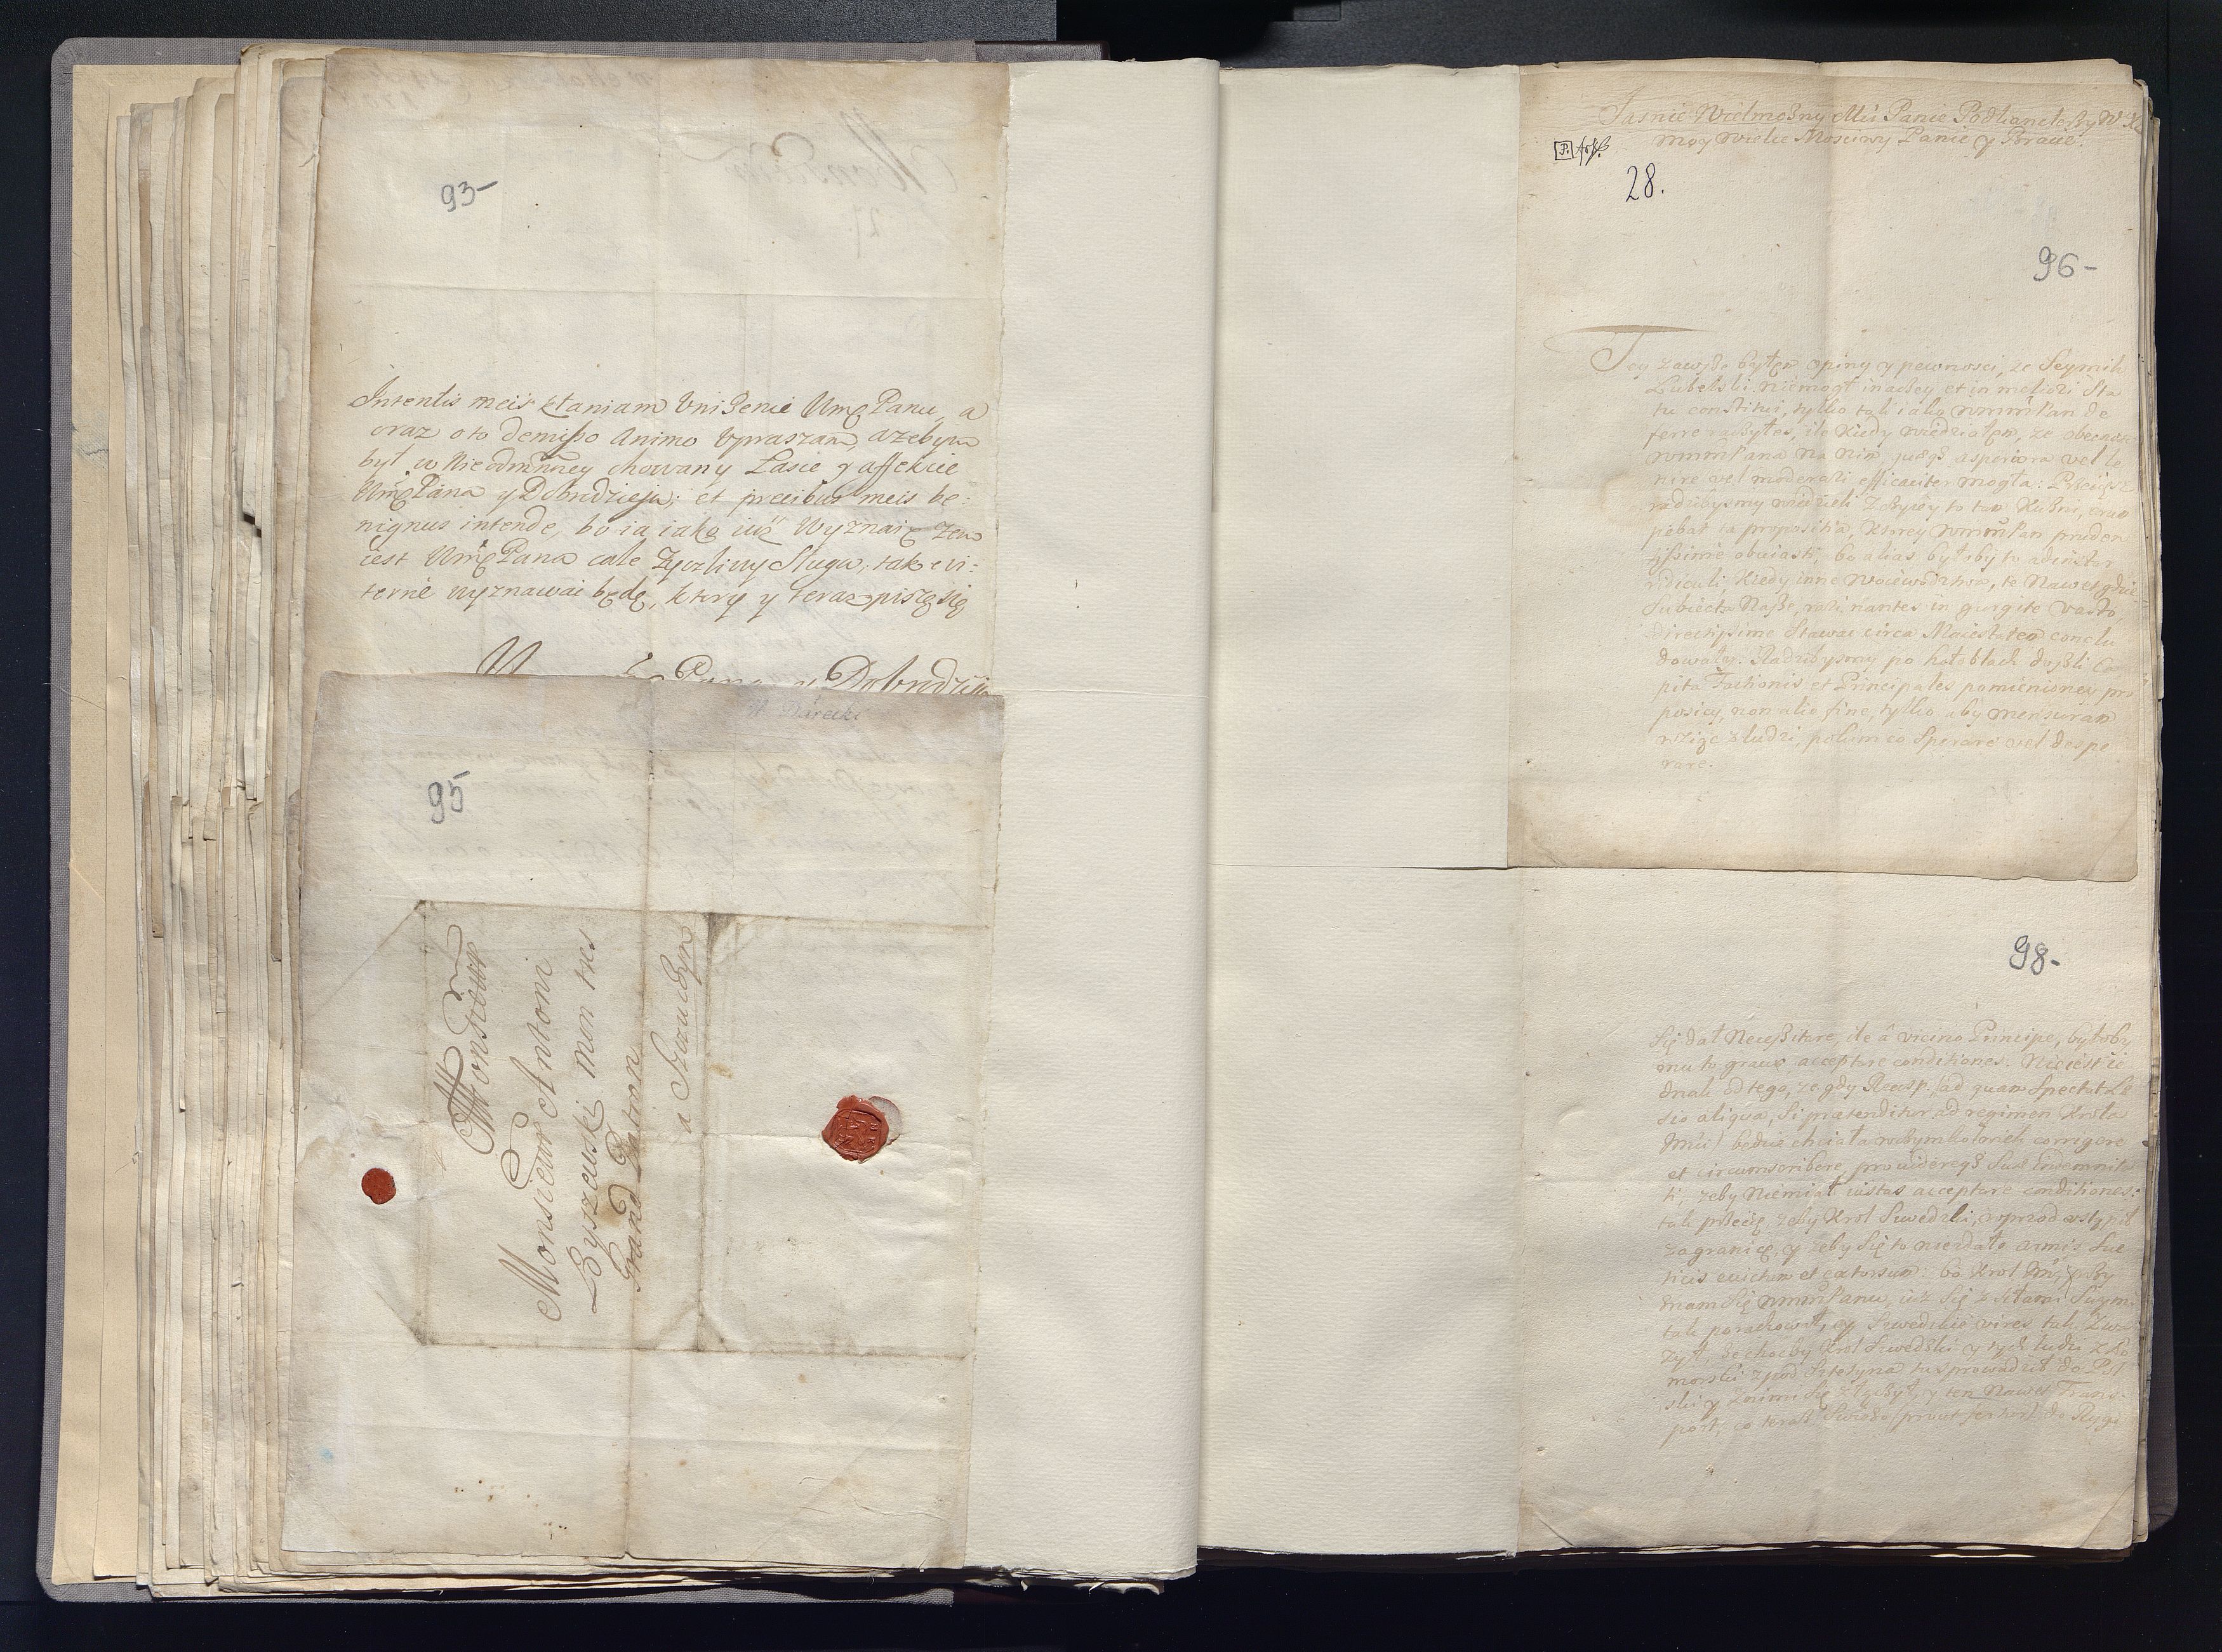 93-
Intentis meis kłaniam Uniżenie Umę Panu, a
oraz oto demisso Animo Upraszam, azebym
był w Nieodmnney chowany Łasce y affekcie
Umę Pana y Dobrodzieja; et precibus meis be:
nignus intende, bo ia iako iuż Wyznaię żem
iest Umę Pana cale Zyczliwy Sługa, tak evi:
ternie wyznawać będę, ktory y teraz piszę się
Pana y Dobrodzieja
95
Monsieur
Monsieur Antoni
Łyszewski mon tres
Grand Patron
a Szczuczyn
Jasnie Wielmożny Mći Panie Podkanclerzy W X
moy wielce Mosciwy Panie y Bracie.
28.
96-
Tey zawsze byłem opiny y pewnosci, ze Seymik
Lubelski niemogł inaczey et in meliori Sta
tu constitui, tylko tak iako wmmPan de
ferre raczyłeś, ile kiedy wiedziałem, ze obecnosc
wmmPana na nim quaeq asperiora vel le
nire vel moderari efficaciter mogła. Przecięsz
radzibysmy wiedzieli
pebat ta propositia, ktorey wmmPan pruden
tissime obviasti, bo alias byłoby to
ridiculi, kiedy inne Woiewodztwa, te Nawet gdzie
Subiecta Nasze, rari nantes in gurgite vasto,
directissime Stawac circa Maiestatem conclu
dowały. Radzibysmy po hołoblach doszli Ca
pita Factionis et Principales pomienioney pro
posicy, non alio fine, tylko aby mensuram
wziąć z ludzi, po kim co Sperare vel despe
rare.
98-
Się dał Necessitare, ile â vicino Principe, byłoby
mu to grave acceptare conditiones. Nieiest ie
dnak od tego, ze gdy Rzeczp. (ad quam Spectat Le
sio aliqua, Si praetenditur ad regimen Krola
Jmći) będzie chciała wczymkolwiek corrigere
et circumscribere, providereq Suae indemnita
ti, zeby Niemiał iustas acceptare conditiones:
tak przecię, zeby Krol Szwedzki, wprzod ustąpił
zagranicę, y zeby Się to niezdało armis Sue
ticis evictum et extorsum: bo Krol Jmć, przy
znam Się wmmPanu, iuż Się z siłami Swym
tak porachował, y Szwedzkie vires tak Zwa
żył, że choćby Krol Szwedzki y tych ludzi z Po
morski zpod Sztetyna tu sprowadził do Pol
ski y znimi Się złączył, y ten Nawet Trans
port, co teraz Swiezo (prout fertur) do Rygi